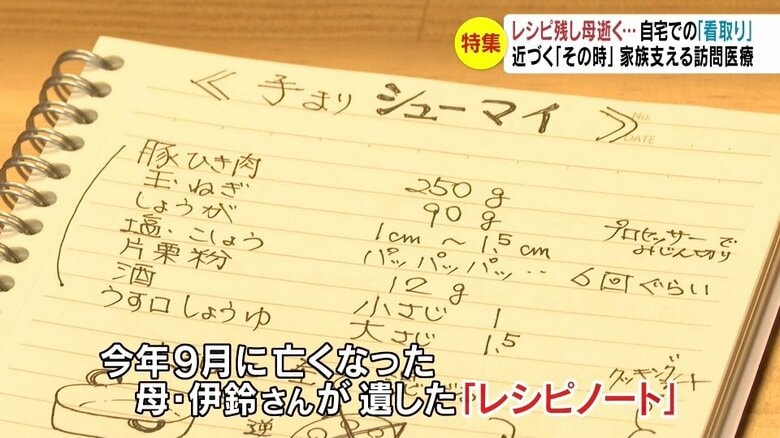 特集
レシピ残し母逝く… 自宅での「看取り」
近づく「その時」 家族支える訪問医療
≪ 手まり シューマイ ≫
No.
DATE
豚ひき肉 250g
玉ねぎ 90g
しょうが 1cm ～ 1.5cm プロセッサーでみじん切り
塩・こしょう パッパッパッ‥ 6回ぐらい
片栗粉 12g
酒 小さじ 1
うす口しょうゆ 大さじ 1.5
クッキング
シート
逆
今年9月に亡くなった
母・伊鈴さんが 遺した「レシピノート」